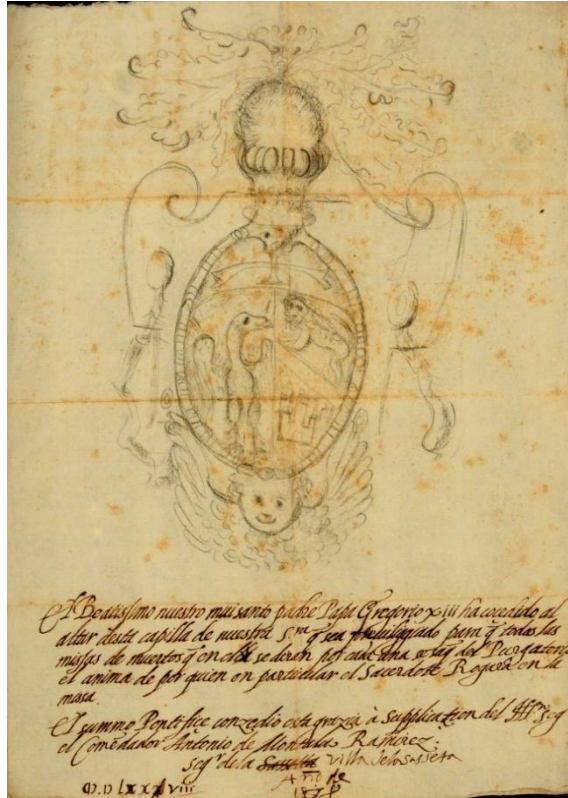 El Beatissimo nuestro mui santo padre Papa Gregorio xiii ha cōcedido al
altar desta capilla de nuestra s.ra q̃ sea previlijiado para q̃ todas las
missas de muertos q̃ en ella se deran por cada una se saq̃ del Purgatorio
el anima de por quien en particular el Sacerdote Rogará en la
masa.
El summo Pontifice conzedio esta grazia à Supplication del
el Comēdador Antonio de Montalu Ramirez,
seg.r de la villa dela sasseta
Año de
M.D lxxxviii